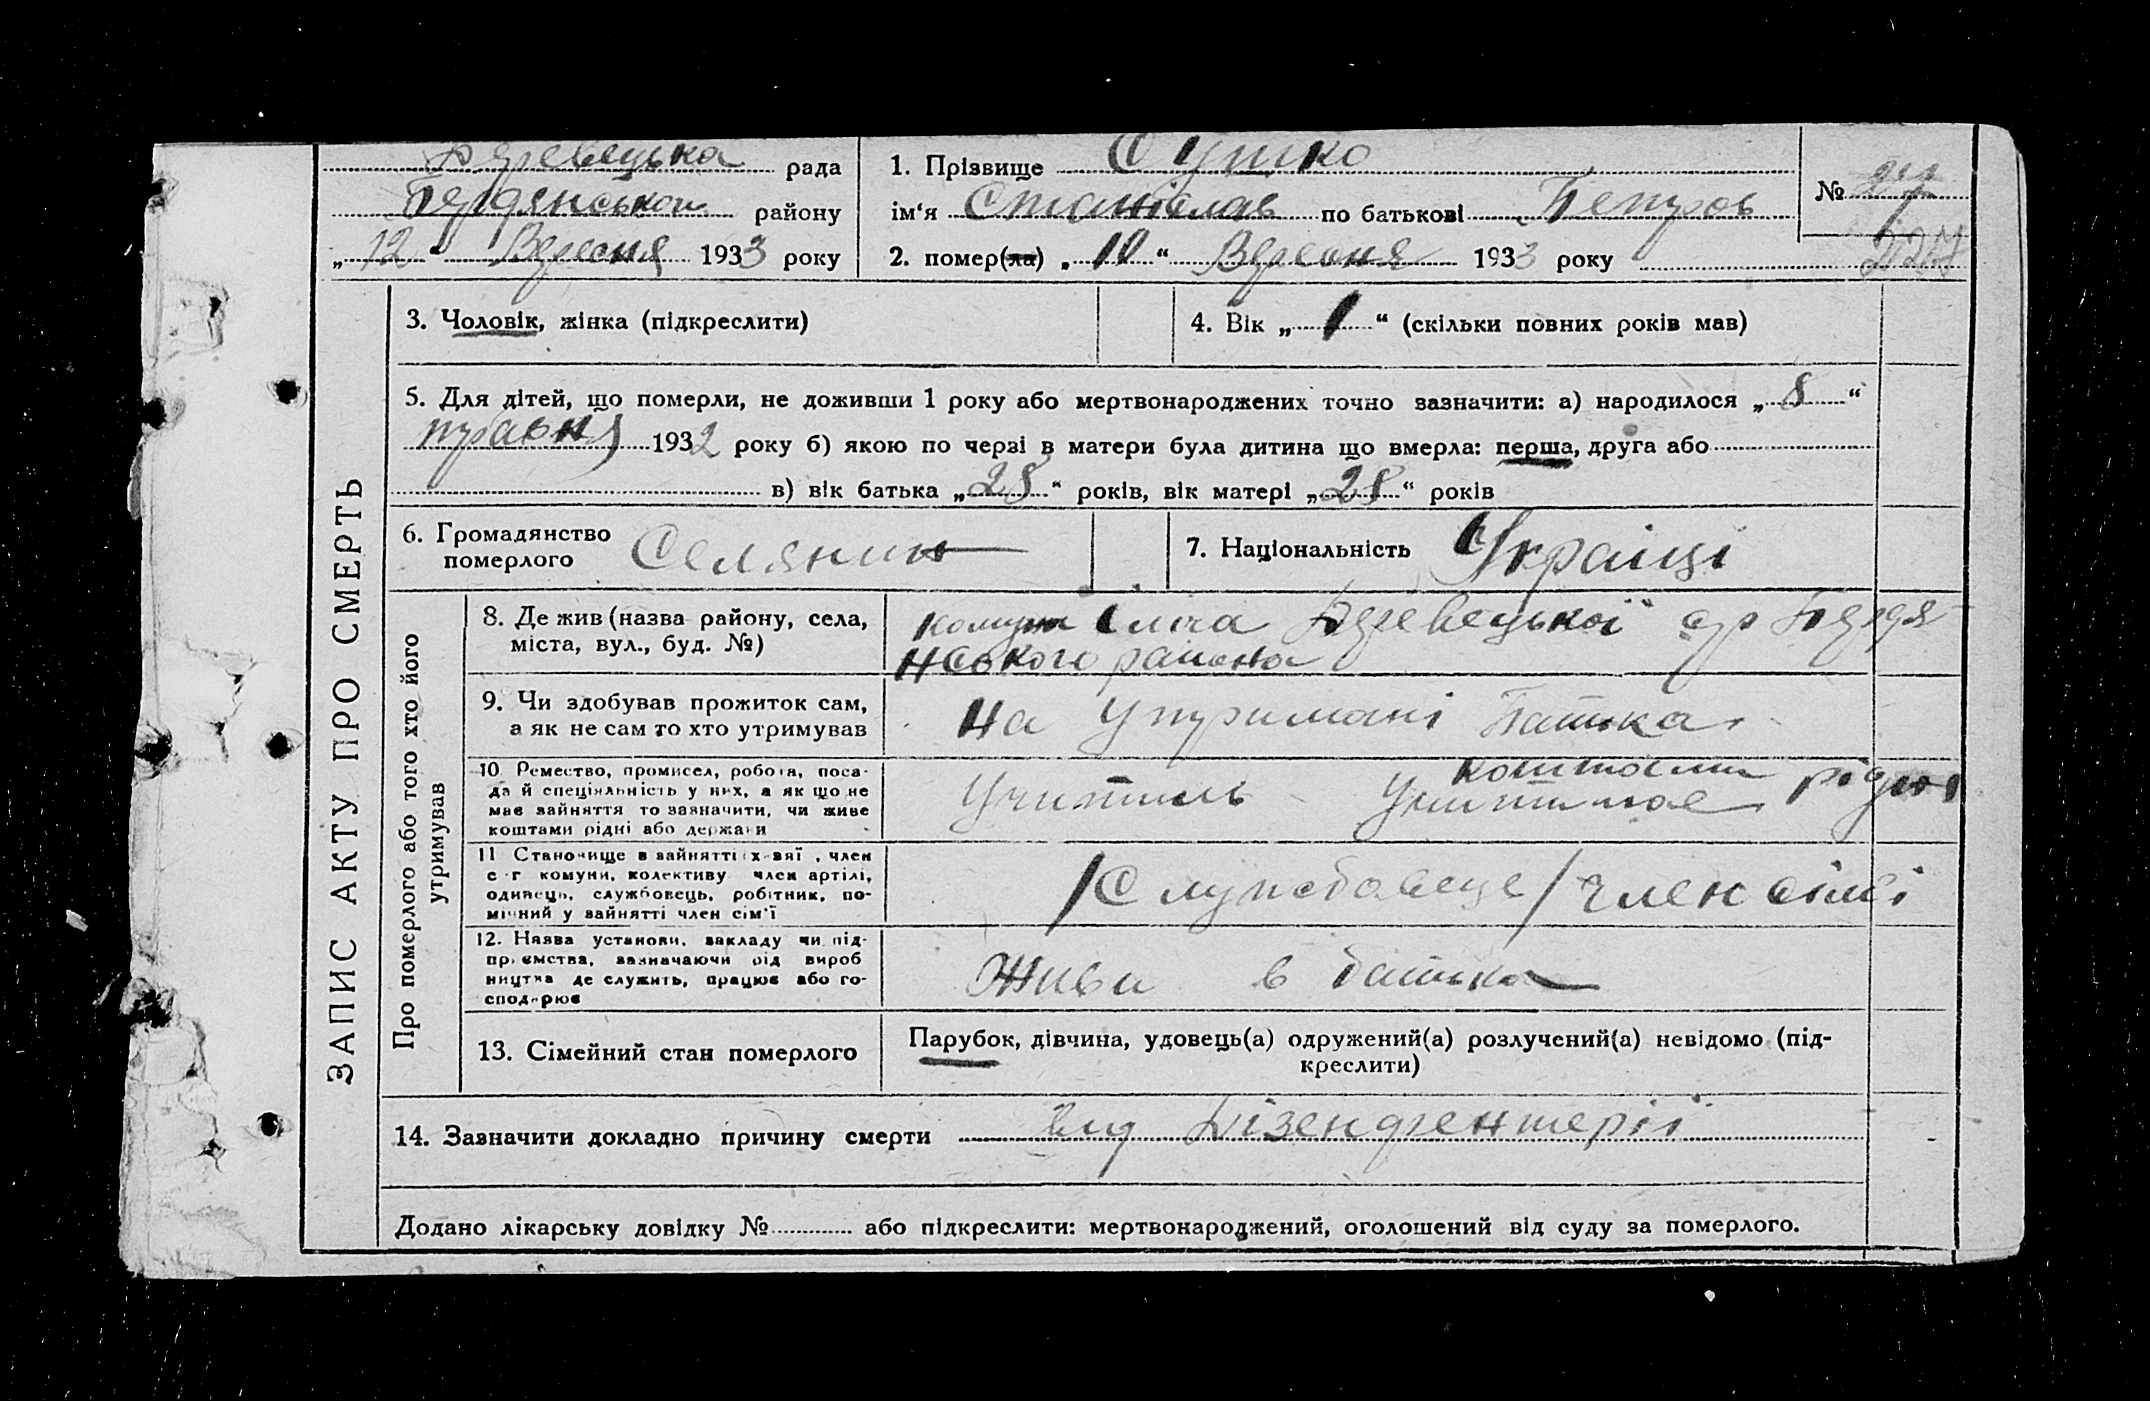 ЗАПИС АКТУ ПРО СМЕРТЬ
рада
району
„ 12 “ Вересня 1933 року
1. Прізвище Сушко
ім‘я Станіслав по батькові Петров
2. помер(ла) „ 10 “ Вересня 1933 року
№ 27
227
3. Чоловік, жінка (підкреслити)
4. Вік „ 1 “ (скільки повних років мав)
5. Для дітей, що померли, не доживши 1 року або мертвонароджених точно зазначити: а) народилося „ 8 “
травня 1932 року б) якою по черзі в матери була дитина що вмерла: перша, друга або
в) вік батька „ 28 “ років, вік матері „ 28 “ років
6. Громадянство
померлого Селянин
7. Національність Україці
Про померлого або того хто його
утримував
8. Де жив (назва району, села,
міста, вул., буд. №)
комуна Іліча
нського района
9. Чи здобував прожиток сам,
а як не сам то хто утримував
на утримані батька
10. Ремество, промисел, робота, поса-
да й спеціяльність у них, а як що не
має зайняття то зазначити, чи живе
коштами рідні або держави
коштами рідні
Учитиль
11. Становище в зайнятті (хазяї, член
с-г комуни, колективу член артілі,
одинець, службовець, робітник, по-
мічний у зайнятті член сім‘ї
/Службовеце/ член сімі
12. Назва установи, закладу чи під-
приємства, зазначаючи рід вироб
ництва де служить, працює або го-
сподарює
Живе в батька
13. Сімейний стан померлого
Парубок, дівчина, удовець(а) одружений(а) розлучений(а) невідомо (під-
креслити)
14. Зазначити докладно причину смерти від Дізендрентерії
Додано лікарську довідку № або підкреслити: мертвонароджений, оголошений від суду за померлого.